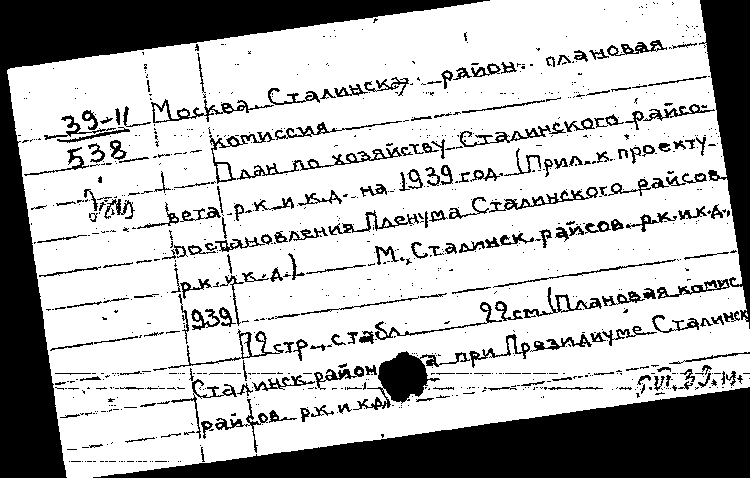 39-11
538
Москва. Сталинская район. плановая
комиссия.
План по хозяйству Сталинского райсо-
вета р.к и к.д. на 1939 год. (Прил. к проекту
постановления Пленума Сталинского райсов.
р.к. и к.д.) М., Сталинск. райсов. р.к. и к.д.,
1939
72 стр., с табл. 22 см. (Плановая комис
Сталинск район а при Президиуме Сталинск
райсов. р.к. и к.д.
5.VI.39.м.